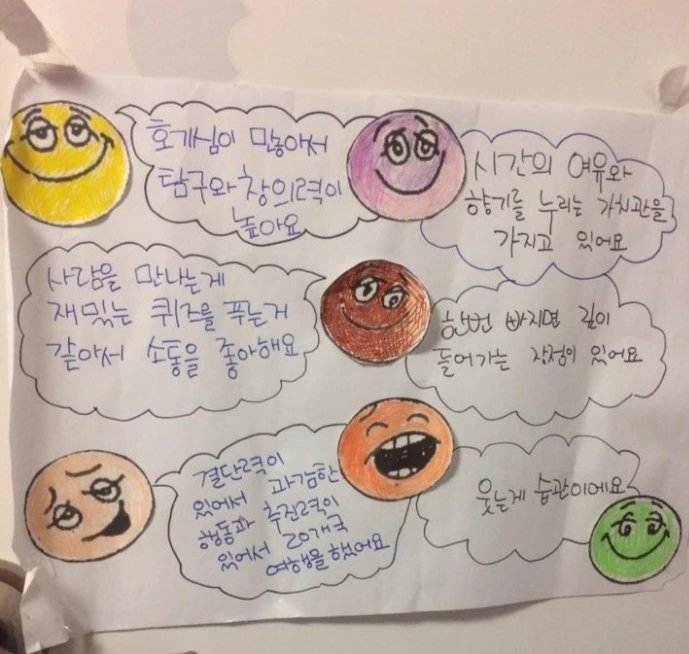 호기심이 많아서
탐구와 창의력이
높아요
시간의 여유와
향기를 누리는 가치관을
가지고 있어요
사람을 만나는게
재밌는 퀴즈를 푸는거
같아서 소통을 좋아해요
한번 빠지면 깊이
들어가는 장점이 있어요
결단력이
있어서 과감한
행동과 추진력이
있어서 20개국
여행을 했어요
웃는게 습관이에요